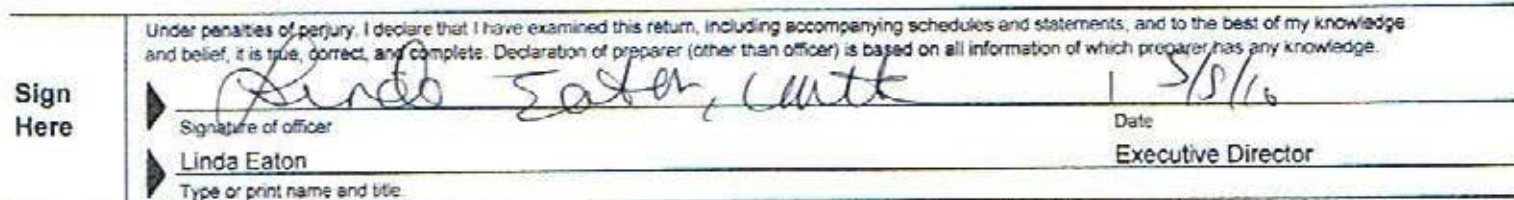 Under penalties of perjury, I declare that I have examined this return, including accompanying schedules and statements, and to the best of my knowledge
and belief, it is true, correct, and complete. Declaration of preparer (other than officer) is based on all information of which preparer has any knowledge.
Sign
Here
Linda Eaton,
Signature of officer
Date
Linda Eaton
Executive Director
Type or print name and title